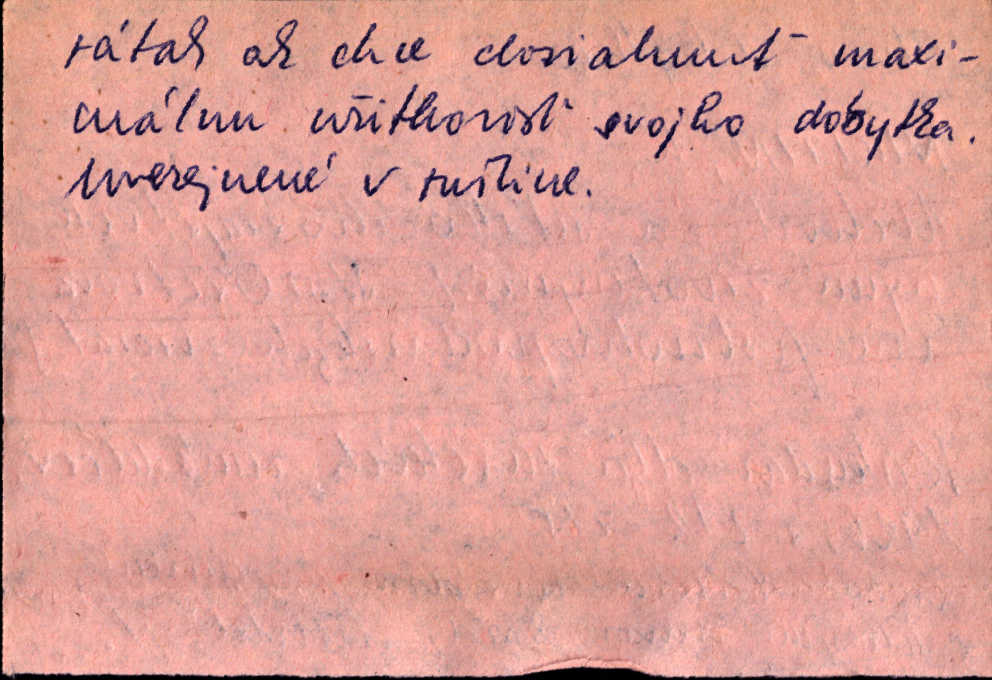 rátať ak chce dosiahnuť maxi-
málnu úžitkovosť svojho dobytka.
Uverejnené v ruštine.